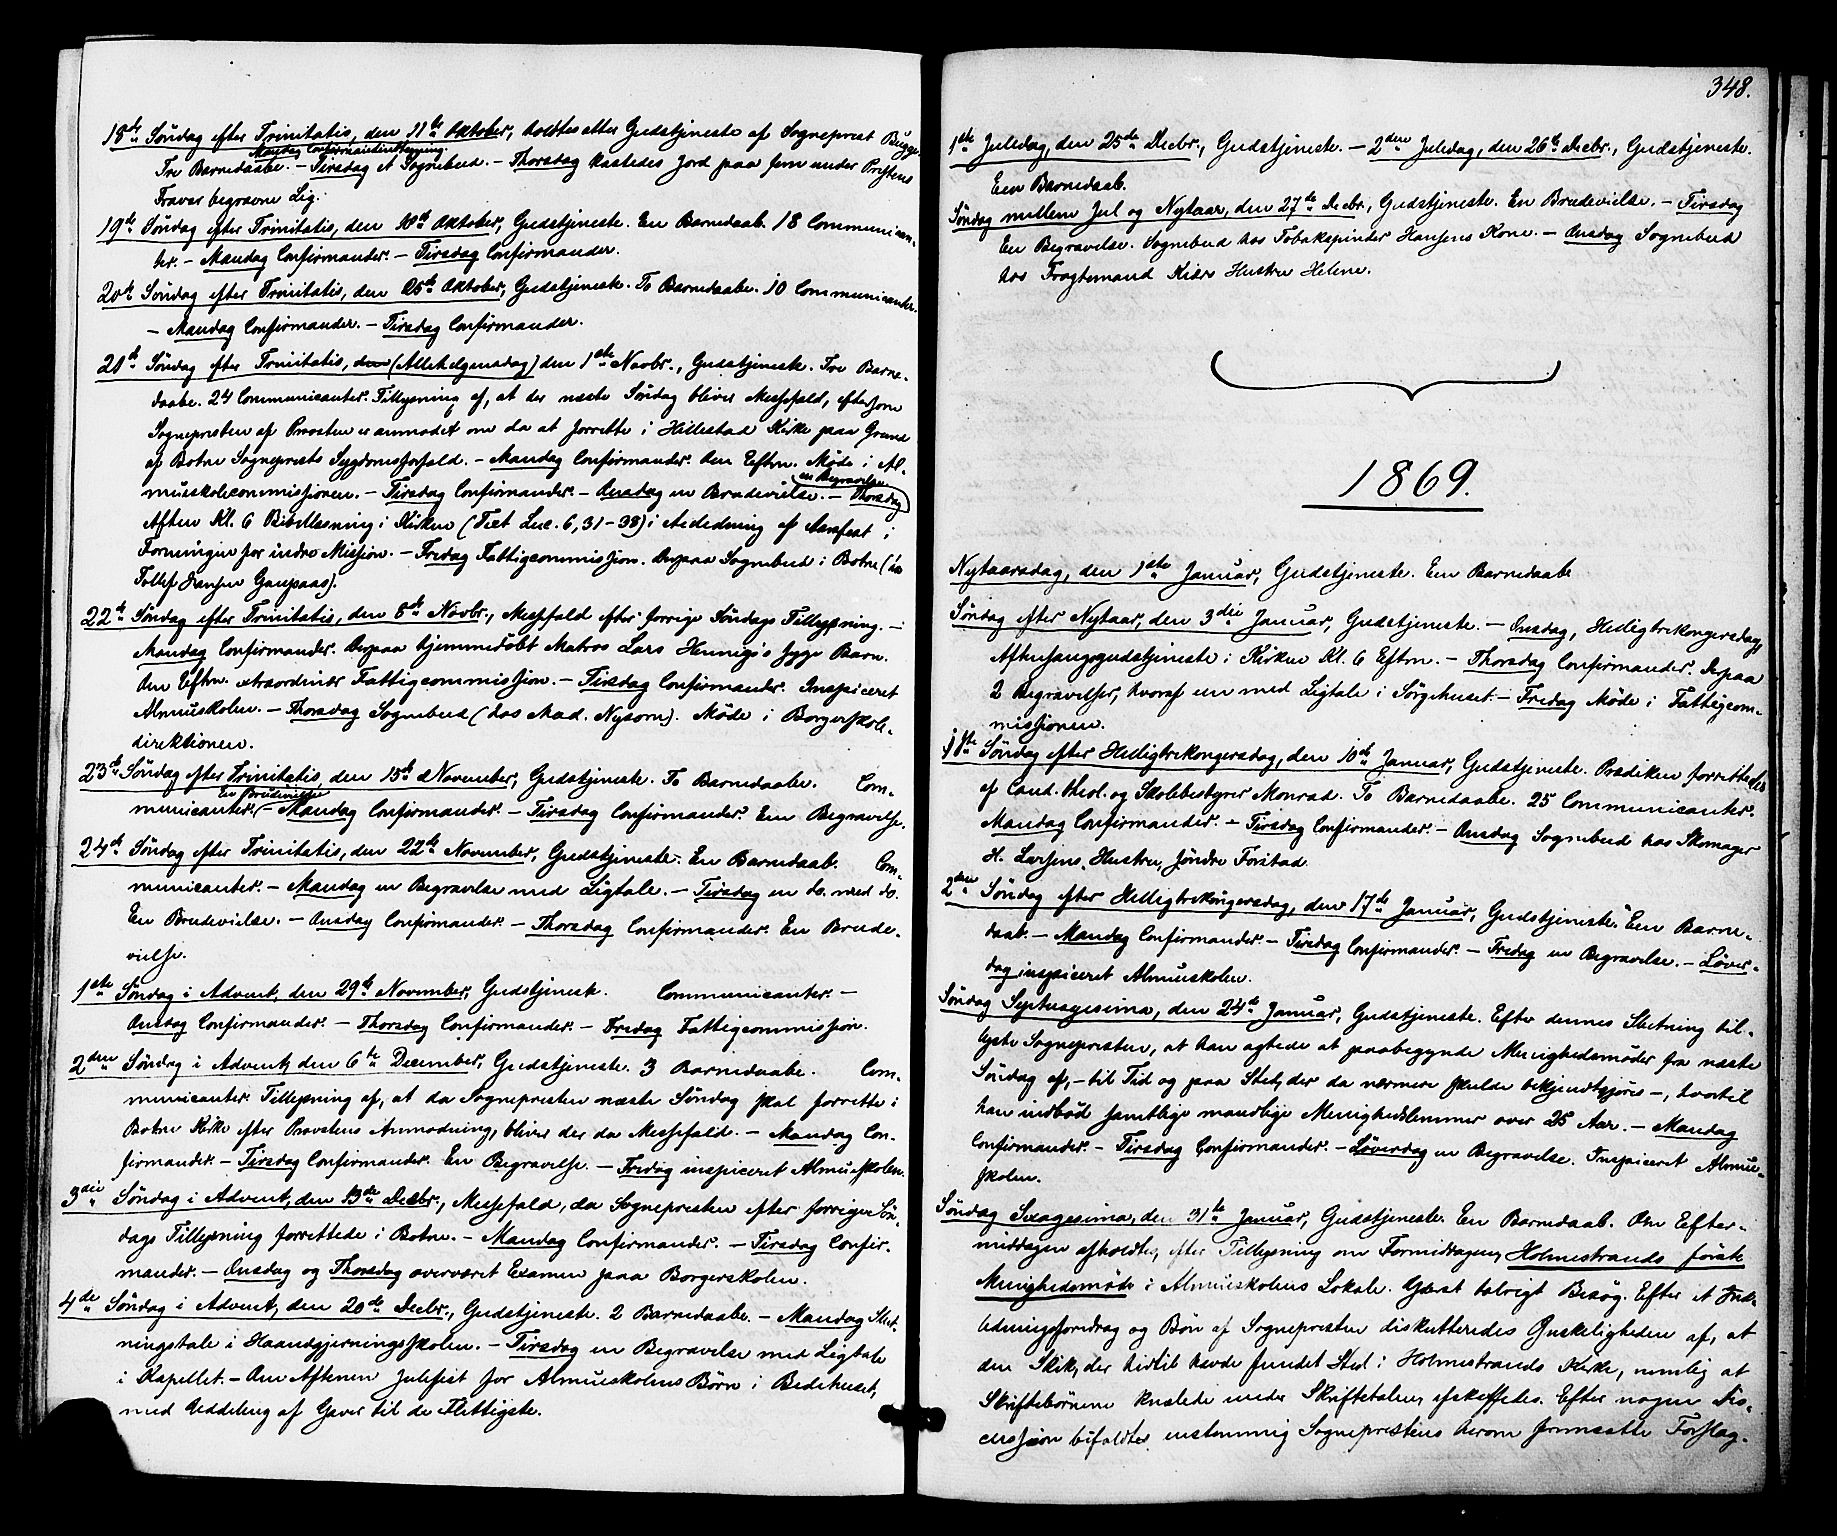 18de Søndag efter Trinitatis, den 11te Oktober, holdtes atter Gudstjeneste af Sogneprest Bugge.
Mandag Confirmandindtegning.
Tre Barnedaabe. – Tirsdag et Sognebud. – Thorsdag kastedes Jord paa fem under Prestens
Fravær begravne Lig.
19de Søndag efter Trinitatis, den 18de Oktober, Gudstjeneste. En Barnedaab. 18 Communican-
ter. – Mandag Confirmander. – Tirsdag Confirmander.
20de Søndag efter Trinitatis, den 25de Oktober, Gudstjeneste. To Barnedaabe. 10 Communicanter.
– Mandag Confirmander. – Tirsdag Confirmander.
21de Søndag efter Trinitatis, den (Allehelgensdag) den 1ste Novbr., Gudstjeneste. Tre Barne-
daabe. 24 Communicanter. Tillysning af, at der næste Søndag bliver Messefald, eftersom
Sognepresten af Provsten er anmodet om da at forrette i Hillestad Kirke paa Grund
af Botne Sogneprests Sygdomsforfald. – Mandag Confirmander. Om Efterm. Møde i Al-
en Begravelse
mueskolecommissionen. – Tirsdag Confirmander. – Onsdag en Brudevielse. – Thorsdag
Aften Kl. 6 Bibellæsning i Kirken (Text Luc. 6, 31–38) i Anledning af Aarsfest i
Foreningen for indre Mission. – Fredag Fattigcommission. Derpaa Sognebud i Botne (hos
Tollef Hansen Gaupaas).
22de Søndag efter Trinitatis, den 8de Novbr., Messefald efter forrige Søndags Tillysning. –
Mandag Confirmander. Derpaa hjemmedøbt Matros Lars Hennigs's syge Barn.
Om Efterm. extraordinær Fattigcommission. – Tirsdag Confirmander. Inspiceret
Almueskolen. – Thorsdag Sognebud (hos Mad. Nysom). Møde i Borgerskole-
direktionen.
23de Søndag efter Trinitatis, den 15de November, Gudstjeneste. To Barnedaabe. Com-
En Brudevielse
municanter. – Mandag Confirmander. – Tirsdag Confirmander. Een Begravelse.
24de Søndag efter Trinitatis, den 22de November, Gudstjeneste. En Barnedaab. Com-
municanter. – Mandag en Begravelse med Ligtale. – Tirsdag en do. med do.
En Brudevielse. – Onsdag Confirmander. – Thorsdag Confirmander. En Brude-
vielse.
1ste Søndag i Advent, den 29de November, Gudstjeneste. Communicanter. –
Onsdag Confirmander. – Thorsdag Confirmander. – Fredag Fattigcommission.
2den Søndag i Advent, den 6te December, Gudstjeneste. 3 Barnedaabe. Com-
municanter. Tillysning af, at da Sognepresten næste Søndag skal forrette i
Botne Kirke efter Provstens Anmodning, bliver der da Messefald. – Mandag Con-
firmander. – Tirsdag Confirmander. En Begravelse. – Fredag inspiceret Almueskolen.
3die Søndag i Advent, den 13de Decbr., Messefald, da Sognepresten efter forrige Søn-
dags Tillysning forrettede i Botne. – Mandag Confirmander. – Tirsdag Confir-
mander. – Onsdag og Thorsdag overværet Examen paa Borgerskolen.
4de Søndag i Advent, den 20de Decbr., Gudstjeneste. 2 Barnedaabe. – Mandag Slut-
ningstale i Haandgjerningsskolen. – Tirsdag en Begravelse med Ligtale
i Kapellet. – Om Aftenen Julefest for Almueskolens Børn i Bedehuset,
med Uddeling af Gaver til de Flittigste.
348.
1ste Juledag, den 25de Decbr., Gudstjeneste. – 2den Juledag, den 26de Decbr., Gudstjeneste.
Een Barnedaab.
Søndag mellem Jul og Nytaar, den 27de Decbr., Gudstjeneste. En Brudevielse. – Tirsdag
En Begravelse. Sognebud hos Tobakspinder Hansens Kone. – Onsdag Sognebud
hos Fragtemand Kiærs Hustru Helene.
1869.
Nytaarsdag, den 1ste Januar, Gudstjeneste. Een Barnedaab
Søndag efter Nytaar, den 3die Januar, Gudstjeneste. – Onsdag, Helligtrekongersdag,
Aftensangsgudstjeneste i Kirken Kl. 6 Efterm. – Thorsdag Confirmander. Derpaa
2 Begravelser, hvoraf en med Ligtale i Sørgehuset. – Fredag Møde i Fattigcom-
missionen.
1ste Søndag efter Helligtrekongersdag, den 10de Januar, Gudstjeneste. Prædiken forrettedes
af Cand. theol. og Skolebestyrer Monrad. To Barnedaabe. 25 Communicanter.
Mandag Confirmander. – Tirsdag Confirmander. – Onsdag Sognebud hos Skomager
H. Larsens Hustru, søndre Forstad.
2den Søndag efter Helligtrekongersdag, den 17de Januar, Gudstjeneste. Een Barne-
daab. – Mandag Confirmander. – Tirsdag Confirmander. – Fredag en Begravelse. – Løver-
dag inspiceret Almueskolen.
Søndag Septuagesima, den 24de Januar, Gudstjeneste. Efter dennes Slutning til-
lyste Sognepresten, at han agtede at paabegynde Menighedsmøder fra næste
Søndag af, – til Tid og paa Sted, der da nærmere skulde bekjendtgjøres –, hvortil
han indbød samtlige mandlige Menighedslemmer over 25 Aar. – Mandag
Confirmander. – Tirsdag Confirmander. – Løverdag en Begravelse. Inspiceret Almue-
skolen.
Søndag Sexagesima, den 31te Januar, Gudstjeneste. En Barnedaab. Om Efter-
middagen afholdtes, efter Tillysning om Formiddagen, Holmestrands første
Menighedsmøde i Almueskolens Lokale. Yderst talrigt Besøg. Efter et Ind-
ledningsforedrag og Bøn af Sognepresten diskutteredes Ønskeligheden af, at
den Skik, der hidtil havde fundet Sted i Holmestrands Kirke, nemlig at
Skriftebørnene knælede under Skriftetalen, afskaffedes. Efter nogen Dis-
cussion bifaldtes enstemmig Sogneprestens herom fremsatte Forslag.